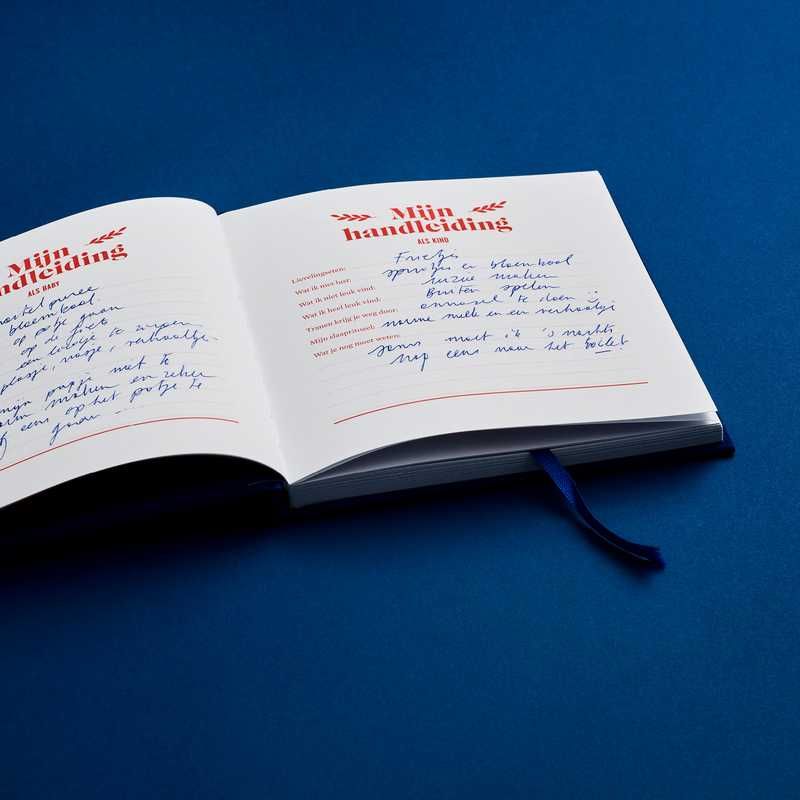 Mijn
ndleiding
ALS BABY
wortel puree
bloemkool.
op potje gaan
op de fiets
een liedje te zingen
plasje, verhaaltje
mijn papje niet te
warm maken en zeker
eens op het potje te
gaan
Mijn
handleiding
ALS KIND
Lievelingseten: Frietjes
Wat ik niet lust: spruitjes en bloemkool
Wat ik niet leuk vind: ruzie maken
Wat ik heel leuk vind: Buiten spelen
Tranen krijg je weg door: onnozel te doen
Mijn slaapritueel: warme melk en een verhaaltje
Wat je nog moet weten: soms moet ik 's nachts
nog eens naar het toilet!